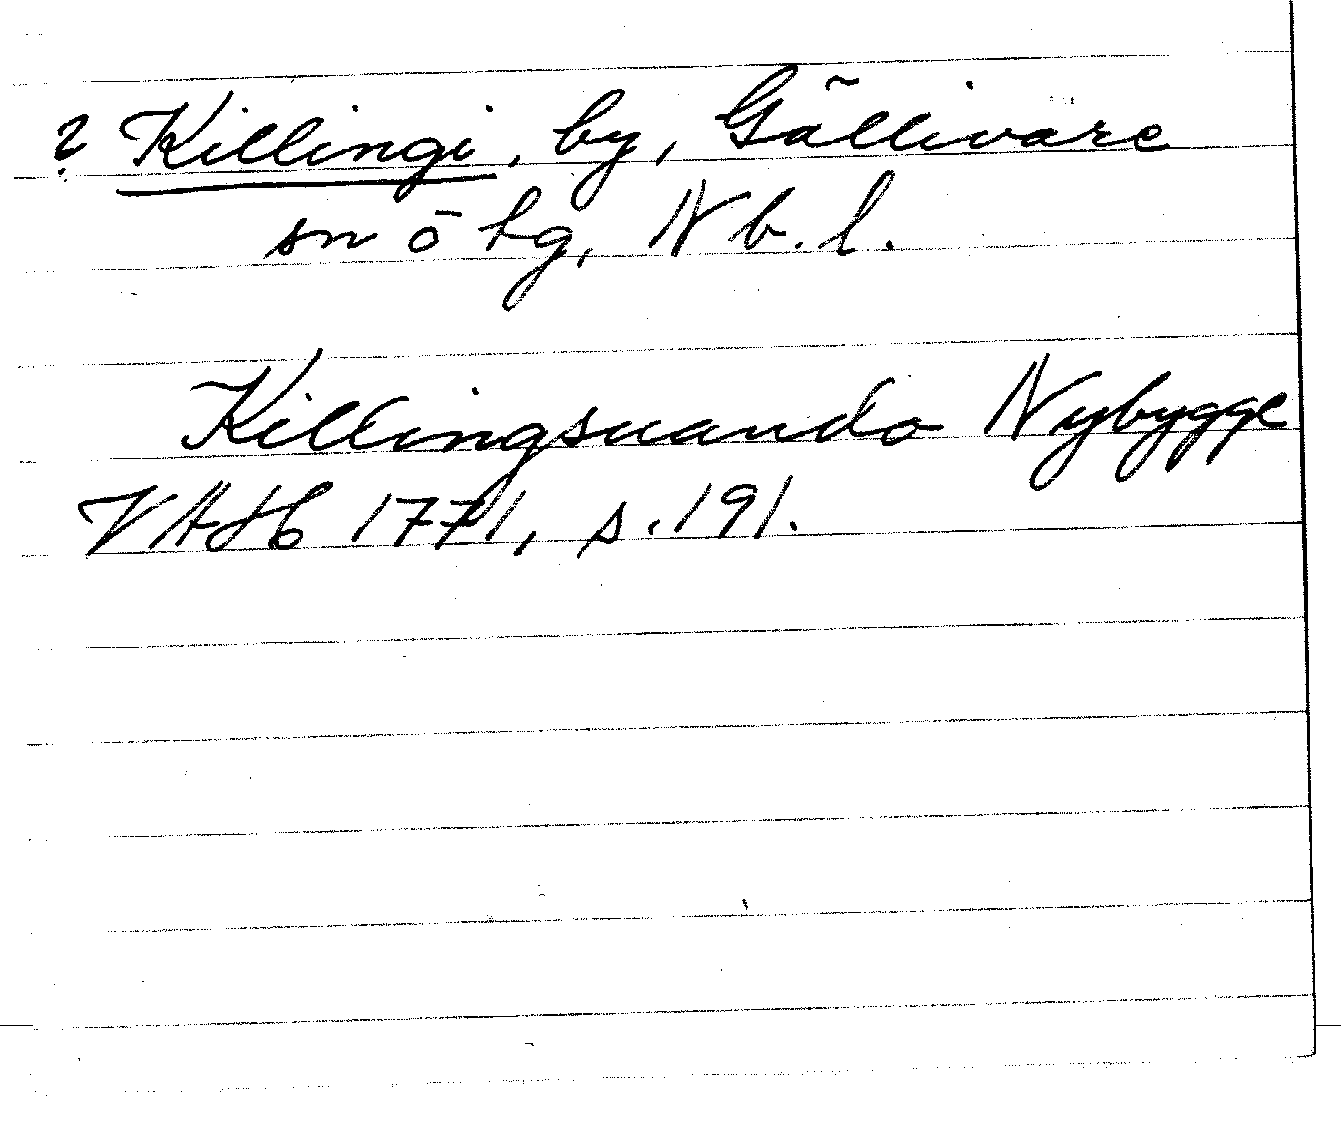 ? Killingi, by, Gällivare
sn ö tg, Nb. l.
Killingsuando Nybygge
VAHb 1771, s. 191.